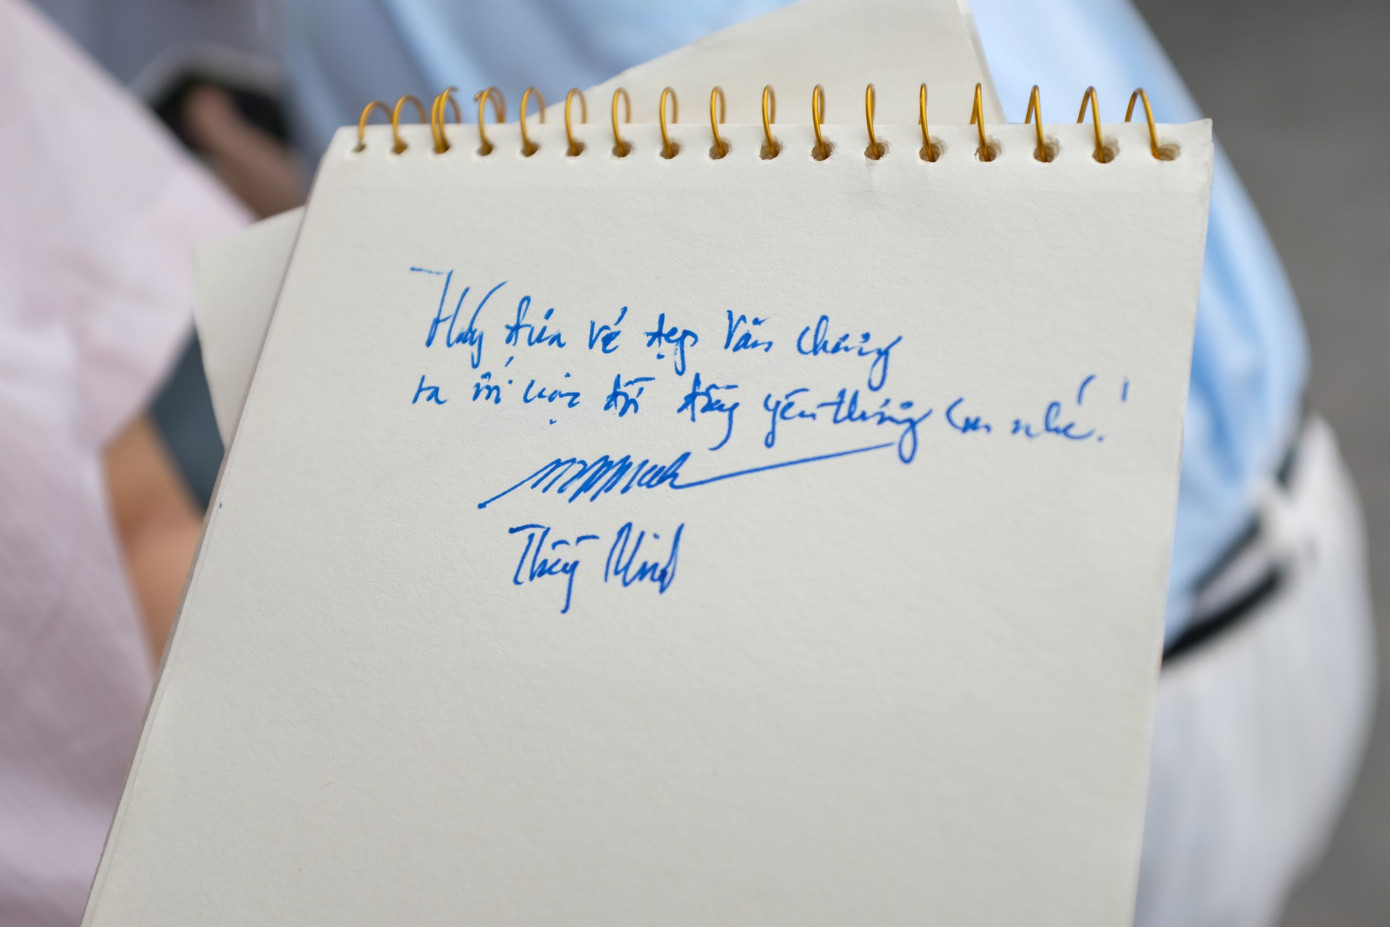 Hãy đưa vẻ đẹp văn chương
ra với cuộc đời đầy yêu thương con nhé!
Thủy Minh